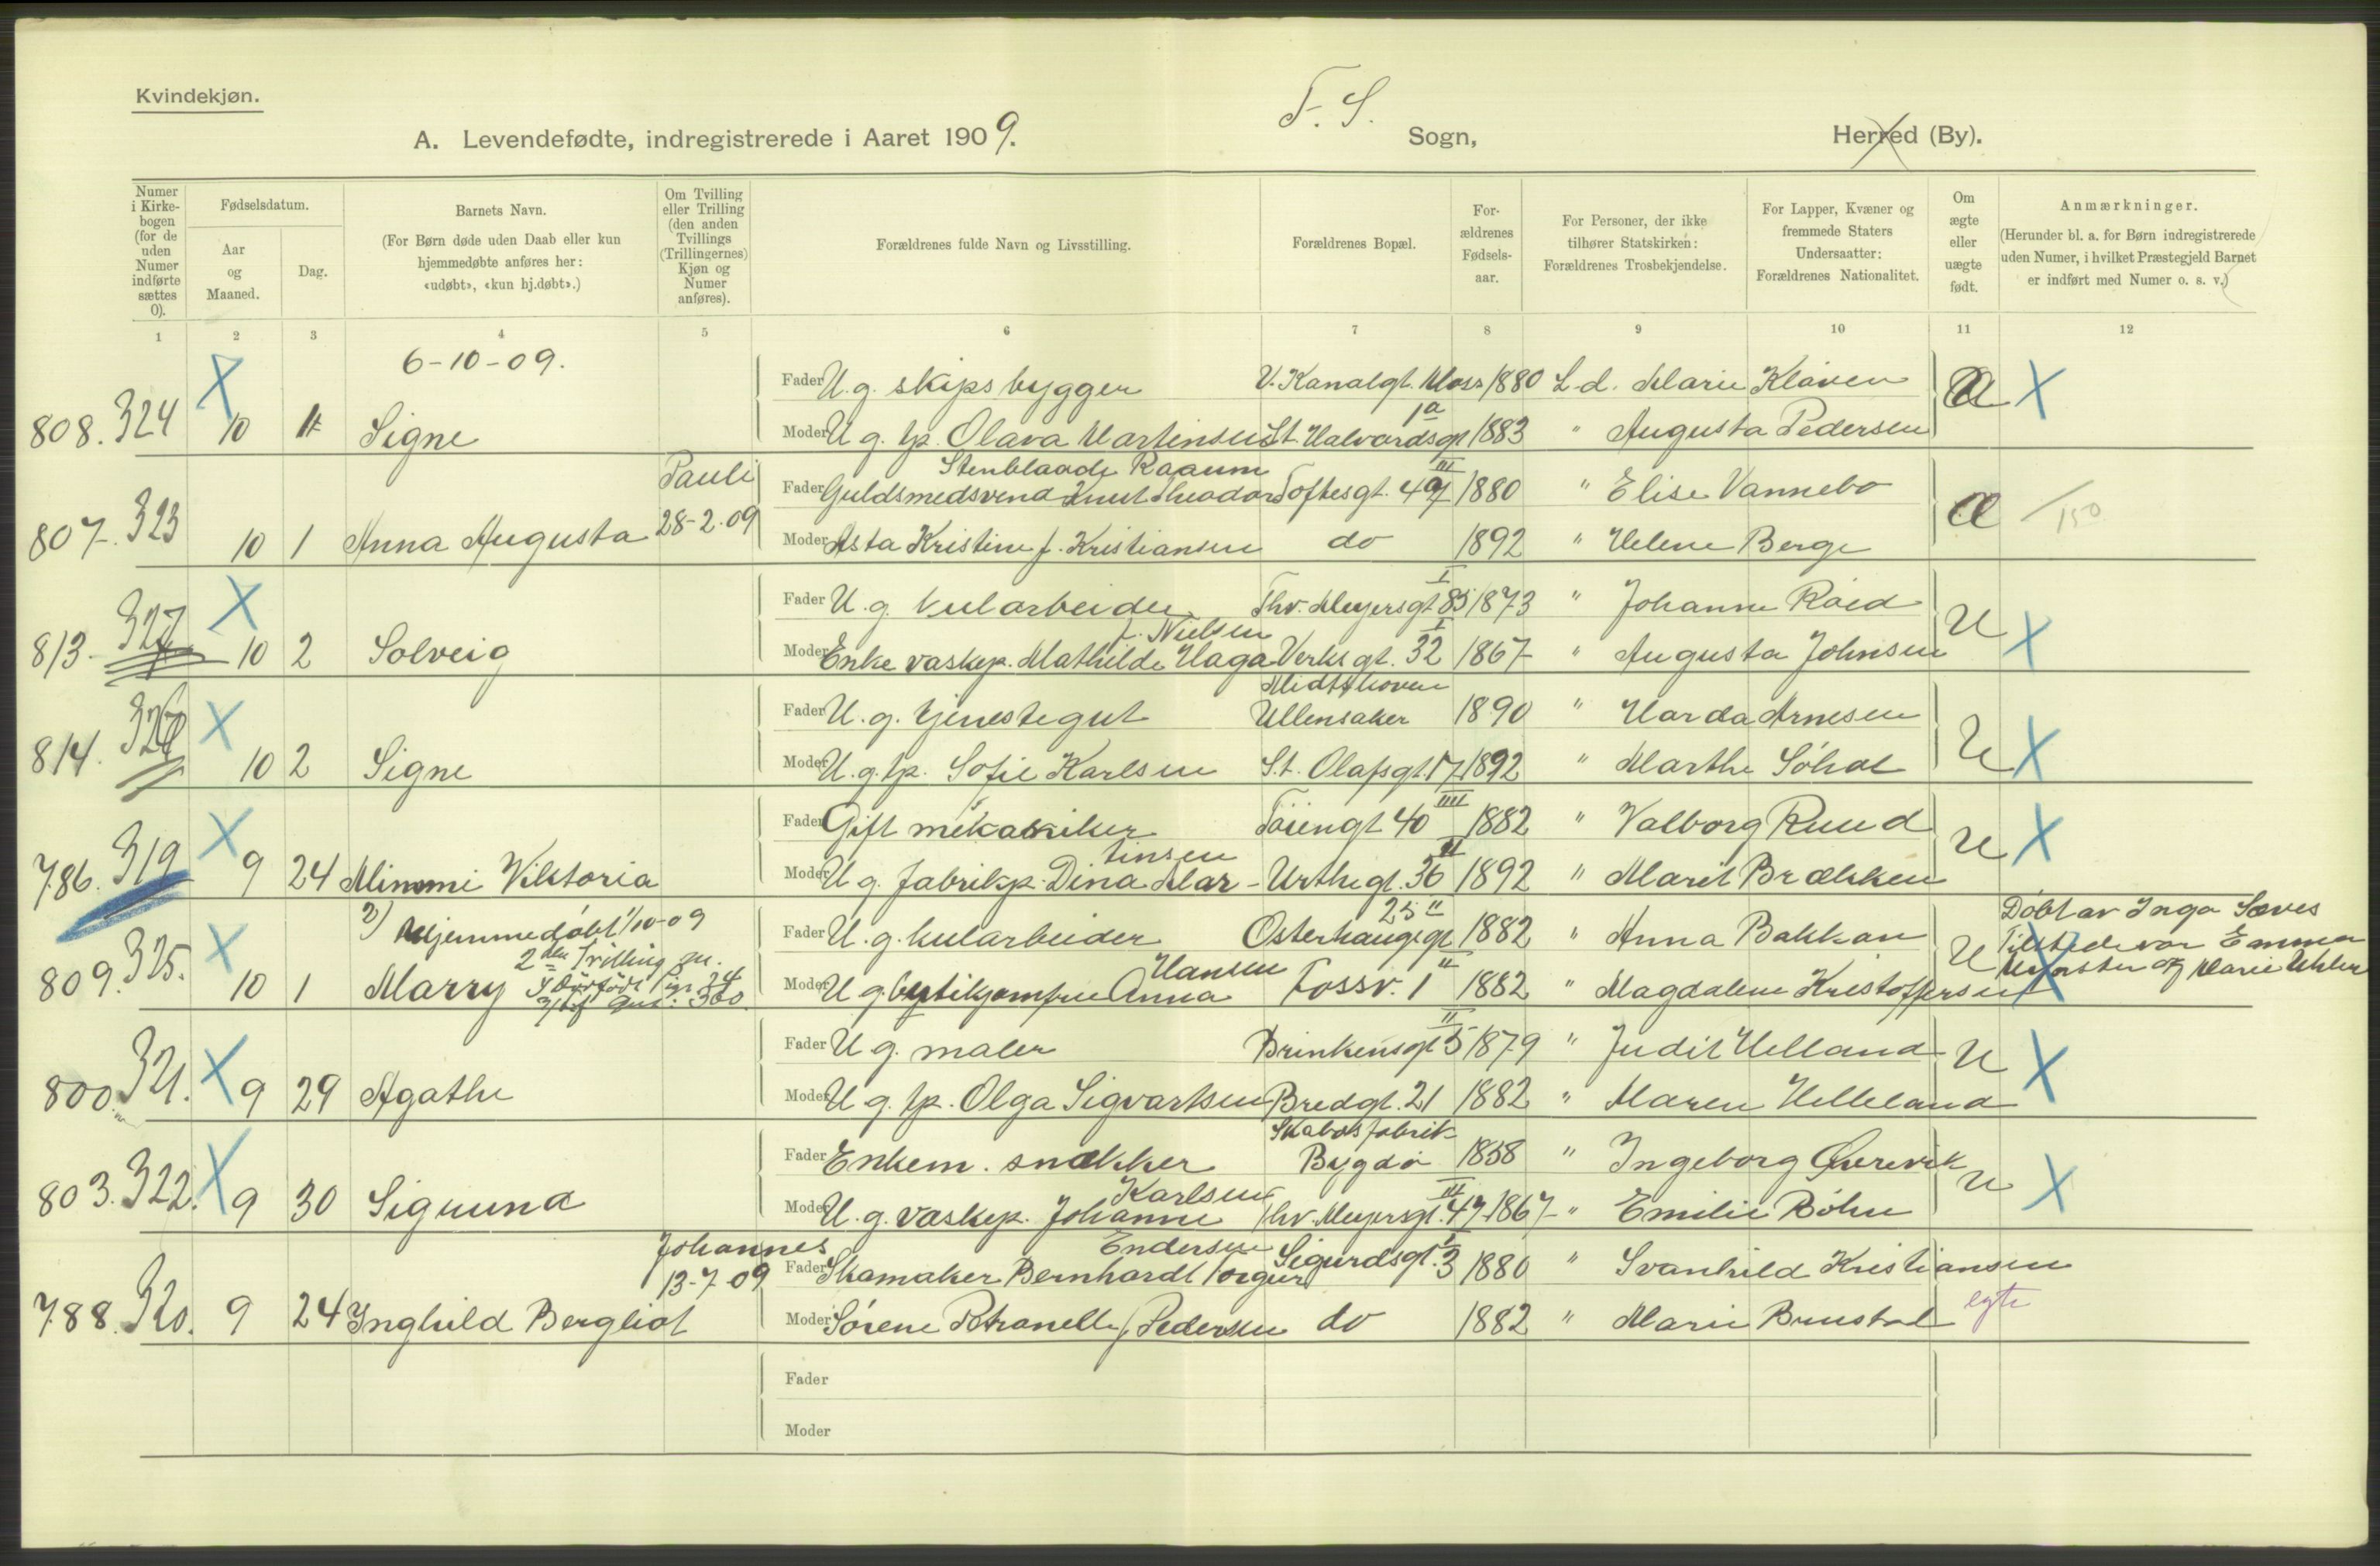 Kvindekjøn.
F. S.
A. Levendefødte, indregistrerede i Aaret 1909. Sogn, Herred (By).
Numer i Kirkebogen (for de uden Numer indførte sættes 0).
Fødselsdatum.
Aar og Maaned.
Dag.
Barnets Navn.
(For Børn døde uden Daab eller kun hjemmedøbte anføres her: «udøbt», «kun hj.døbt».)
Om Tvilling eller Trilling (den anden Tvillings (Trillingernes) Kjøn og Numer anføres).
Forældrenes fulde Navn og Livsstilling.
Forældrenes Bopæl.
Forældrenes Fødselsaar.
For Personer, der ikke tilhører Statskirken: Forældrenes Trosbekjendelse.
For Lapper, Kvæner og fremmede Staters Undersaatter: Forældrenes Nationalitet.
Om ægte eller uægte født.
Anmærkninger.
(Herunder bl. a. for Børn indregistrerede uden Numer, i hvilket Præstegjeld Barnet er indført med Numer o. s. v.)
1 2 3 4 5 6 7 8 9 10 11 12
6-10-09.
Fader U. g. skipsbygger V. Kanalgt. Moss 1880 L.d. Marie Kløven
808. 324 X 10 1 Signe
Moder U g. tp. Olava Martinsen St. Halvardsgt 1a 1883 " Augusta Pedersen X
Pauli
28-2-09
Stenblaade Raaum
Fader Guldsmedsvend Knut Theodor Toftesgt. 49 III 1880 " Elise Vannebo
807. 323 10 1 Anna Augusta
Moder Asta Kristine f. Kristiansen do 1892 " Helene Berge Æ 150
Fader U. g. kularbeider Thv. Meyersgt 85 I 1873 " Johanne Røed
813. 327 X 10 2 Solveig
f. Nielsen
Moder Enke vaskep. Mathilde Haga Verksgt. 32 I 1867 " Augusta Johnsen U X
Midtskoven
Fader U. g. tjenestegut Ullensaker 1890 " Harda Arnesen
814. 326 X 10 2 Signe
Moder U. g. tp. Sofie Karlsen St. Olafsgt. 17 1892 " Marthe Söhol U X
Fader Gift mekaniker Töiengt 40 IIII 1882 " Valborg Ruud
786. 319 X 9 24 Mimmi Viktoria
tinsen
Moder U g. fabrikp. Dina Mar- Urthegt. 36 II 1892 " Marit Brækken U X
2) Hjemmedøbt 1/10-09
2den Trilling
Fader U. g. kularbeider Osterhausgt 25 II 1882 " Anna Bakkan
809. 325. X 10 1 Marry
Hansen
Moder U g. butikjomfru Anna Fossv. 1 II 1882 " Magdalene Kristoffersen U X
Døbt av Inga Sæves
Tilstede var Emma
og Marie
Fader U g. maler Brinkensgt 5 II 1879 " Judit Helland
800. 321. X 9 29 Agathe
Moder U g. tp. Olga Sigvartsen Bredgt. 21 1882 " Maren Helleland U X
Skabos fabrik
Fader Enkem. snekker Bygdø 1858 " Ingeborg
803. 322. X 9 30 Sigmund
Karlsen
Moder U. g. vaskep. Johanne Thv. Meyersgt. 47 III 1867 " Emilie Bøhn U X
Johannes
13-7-09
Endersen
Fader Skomaker Bernhardt Torgeir Sigurdsgt. 3 1880 " Svanhild Kristiansen
788. 320. 9 24 Inghild Bergliot
Moder Sörene Petranelle f. Pedersen do 1882 " Marie egte
Fader
Moder